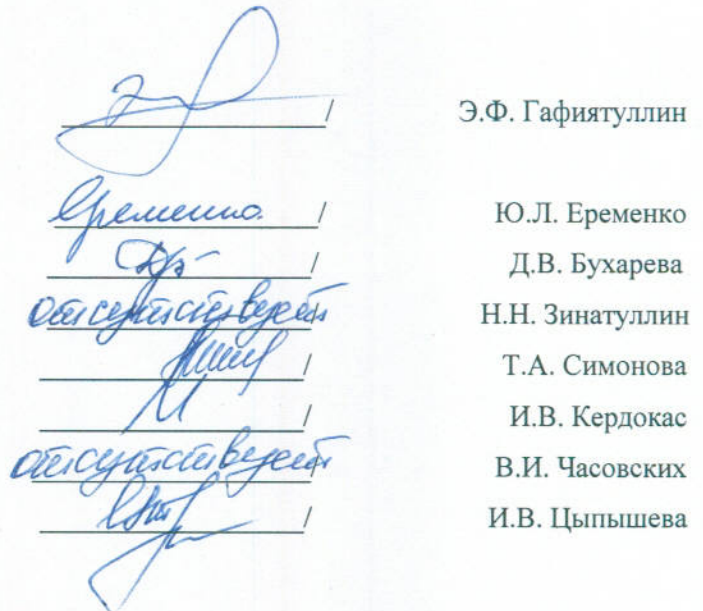 / Э.Ф. Гафиятуллин
Еременко / Ю.Л. Еременко
/ Д.В. Бухарева
отсутствует / Н.Н. Зинатуллин
/ Т.А. Симонова
/ И.В. Кердокас
отсутствует / В.И. Часовских
/ И.В. Цыпышева